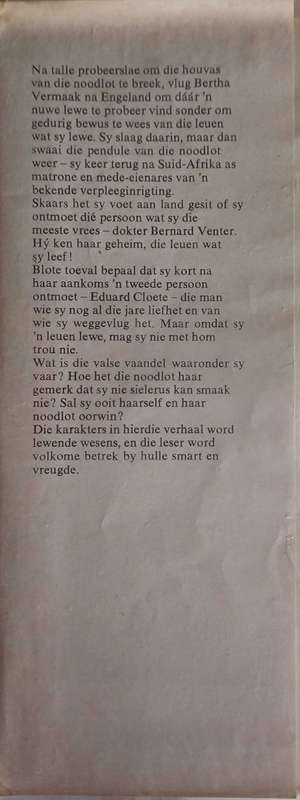 Na talle probeerslae om die houvas
van die noodlot te breek, vlug Bertha
Vermaak na Engeland om dáár 'n
nuwe lewe te probeer vind sonder om
gedurig bewus te wees van die leuen
wat sy lewe. Sy slaag daarin, maar dan
swaai die pendule van die noodlot
weer – sy keer terug na Suid-Afrika as
matrone en mede-eienares van 'n
bekende verpleeginrigting.
Skaars het sy voet aan land gesit of sy
ontmoet dié persoon wat sy die
meeste vrees – dokter Bernard Venter.
Hý ken haar geheim, die leuen wat
sy leef!
Blote toeval bepaal dat sy kort na
haar aankoms 'n tweede persoon
ontmoet – Eduard Cloete – die man
wie sy nog al die jare liefhet en van
wie sy weggevlug het. Maar omdat sy
'n leuen lewe, mag sy nie met hom
trou nie.
Wat is die valse vaandel waaronder sy
vaar? Hoe het die noodlot haar
gemerk dat sy nie sielerus kan smaak
nie? Sal sy ooit haarself en haar
noodlot oorwin?
Die karakters in hierdie verhaal word
lewende wesens, en die leser word
volkome betrek by hulle smart en
vreugde.